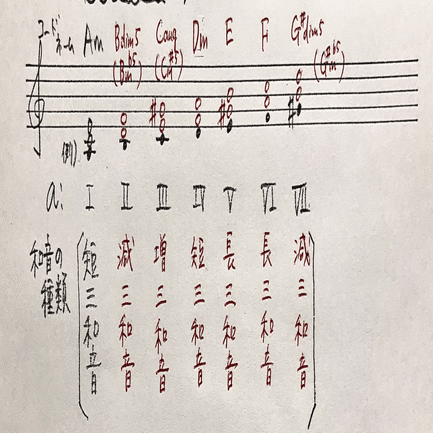 コードネーム Am Bdim5 Caug Dm E F G#dim5
(Bm♭5) (C#5) (G#m♭5)
(例)
a: I II III IV V VI VII
和音の種類 短三和音 減三和音 増三和音 短三和音 長三和音 長三和音 減三和音